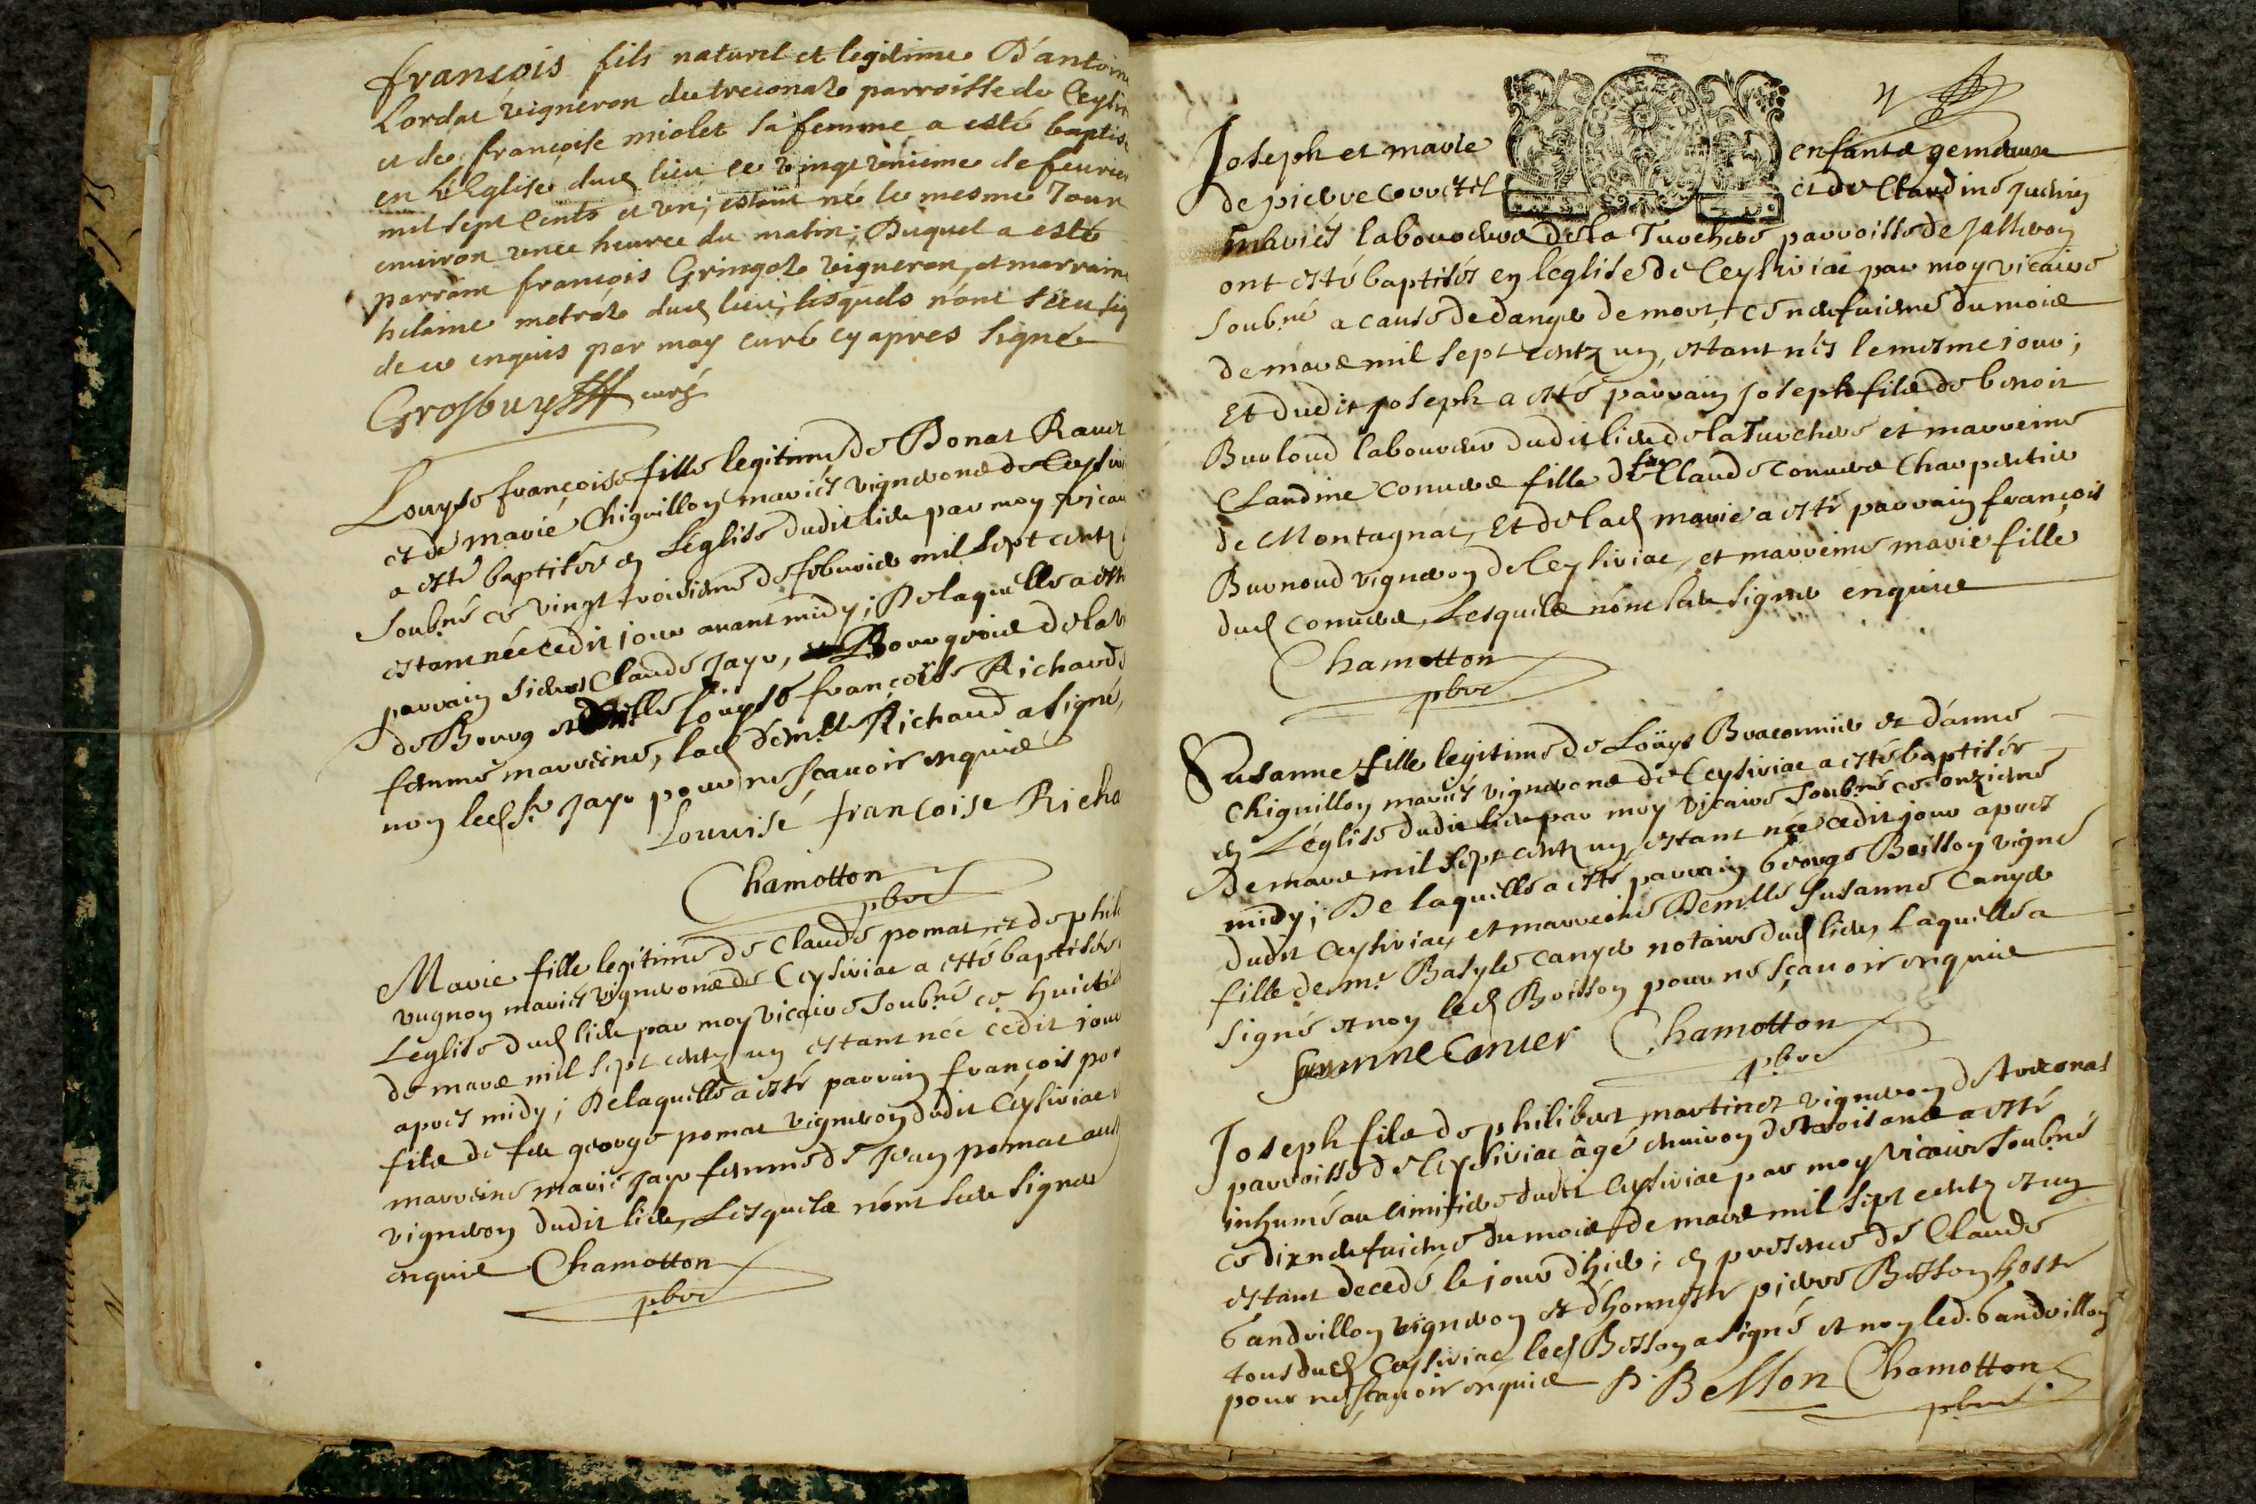 françois fils naturel et legitime D'antoin
Lordat vigneron du treconas parroisse de Ceysir
et de françoise miolet sa femme a esté baptis
en L'Eglise dud lieu ce vingt unieme de feurier
mil sept Cents et un; estant né le mesme Jour
enuiron unce heures du matin; Duquel a esté
parrain françois Gringoz vigneron, et marraine
helaine metraz dud lieu, lesquels n'ont sceu sig
de ce enquis par moy curé cy apres signé
Grosbuy curé
Louyse françoise fille legitime de Donat Rauet
et de marie Chiguilloy mariés vignerons de Ceysiri
a esté baptisée en L'église dudit lieu par moy vicair
Soubné ce vingt troisieme de feburier mil sept centz
estant née cedit jour auant midy; De laquelle a esté
parrain sieur Claude Jayr, Bourgeois de la v
de Bourg et Demlle Louyse françoise Richard
femme marreine, lad demlle Richaud a signé,
noy led Sr Jayr pour ne sçauoir enquis
Louuise françoise Richa
Chamotton
pbre
Marie fille legitime de Claude pomat, et de phili
vugnoy mariés vignerons de Ceysiriac a esté baptisée
L'eglise dud lieu par moy vicaire Soubné ce huictie
de mars mil sept centz un estant née cedit jour
apres midy; De laquelle a esté parrain françois po
fils de feu george pomat vigneroy dudit Ceysiriac
marreine marie Jayr femme de Jean pomat aus
vigneroy dudit lieu, Lesquels n'ont sceu signer
enquis Chamotton
pbre
Joseph et marie enfants gemeaux
de pierre Courtet et de Claudine Juenin
mariés laboureurs de la Turchere parroisse de Jasseroy
ont esté baptisés en l'eglise de Ceysiriac par moy vicaire
Soubné a cause de danger de mort, ce neufuieme du mois
de mars mil sept centz un, estant nés le mesme jour;
Et dudit joseph a esté parrain Joseph fils de benoit
Burloud laboureur dudit lieu de la Turchere et marreine
Claudine conuers fille de feu Claude conuers Charpentier
de Montagnat, Et de lad marie a esté parrain françois
Burnoud vigneroy de Ceysiriac, et marreine marie fille
dud conuers, Lesquels n'ont sceu signer enquis
Chamotton
pbre
Susanne fille legitime de Loüys Braconnier et d'anne
Chiguilloy mariés vignerons de Ceysiriac a esté baptisée
en L'église dudit lieu par moy vicaire Soubné ce onzieme
De mars mil sept centz un, estant née cedit jour apres
midy; De laquelle a esté parrain George Boissoy vigne
dudit Ceysiriac, et marreine Demlle Susanne Canyer
fille de mr Basyle Canyer notaire dud lieu, Laquelle a
signé et noy led Boissoy pour ne sçauoir enquis
Susanne Canier Chamotton
pbre
Joseph fils de philibert martinet vigneroy de treconas
parroisse de Ceysiriac âgé enuiroy de trois ans a esté
inhumé au cimitiere dudit Ceysiriac par moy vicaire Soubné
ce dixneufuieme du mois de mars mil sept centz et un
estant decedé le jour d'hier; en presence de Claude
Gandvilloy vigneroy et d'honneste pierre Bessoy hoste
tous dud Ceysiriac, led Bessoy a signé et noy led. Gandvilloy
pour ne sçauoir enquis P. Besson Chamotton
pbre